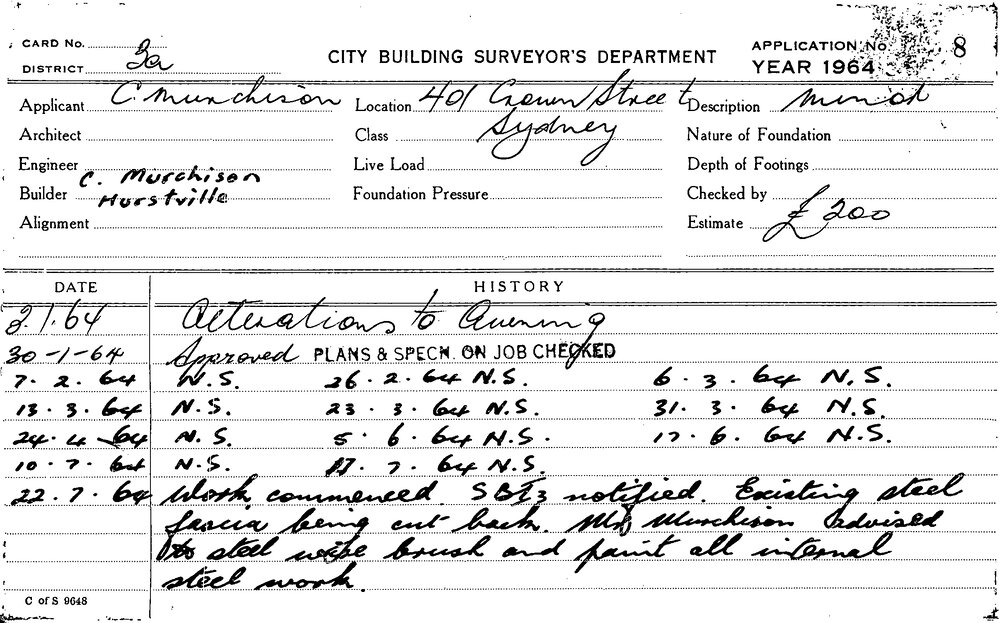 CARD No.
DISTRICT 3a
CITY BUILDING SURVEYOR'S DEPARTMENT
APPLICATION No 8
YEAR 1964
Applicant C. Murchison Location 401 Crown Street Description Minor
Architect Class Sydney Nature of Foundation
Engineer Live Load Depth of Footings
Builder C. Murchison Foundation Pressure Checked by
Hurstville
Alignment Estimate £ 200
DATE HISTORY
2.1.64 Alterations to Awening
30-1-64 Approved PLANS & SPECN. ON JOB CHECKED
7.2.64 N.S. 26.2.64 N.S. 6.3.64 N.S.
13.3.64 N.S. 23.3.64 N.S. 31.3.64 N.S.
24.4.64 N.S. 5.6.64 N.S. 17.6.64 N.S.
10.7.64 N.S. 17.7.64 N.S.
22.7.64 Work commenced. notified. Existing steel
fascia being cut back. Mr Murchison advised
to steel wire brush and paint all internal
steel work.
C of S 9648